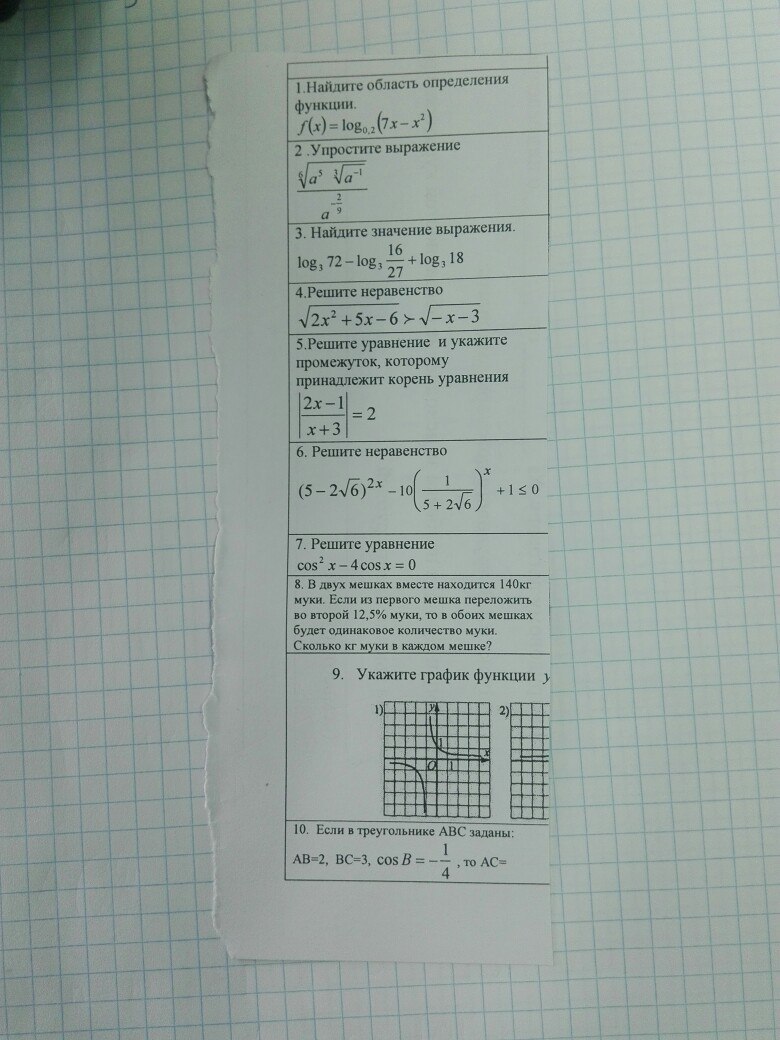 1.Найдите область определения
функции.
f(x) = log₀,₂(7x − x²)
2 .Упростите выражение
⁶√a⁵ ³√a⁻¹
a^(-2/9)
3. Найдите значение выражения.
log₃ 72 − log₃ 16/27 + log₃ 18
4.Решите неравенство
√(2x² + 5x − 6) ≻ √(−x − 3)
5.Решите уравнение и укажите
промежуток, которому
принадлежит корень уравнения
|(2x − 1)/(x + 3)| = 2
6. Решите неравенство
(5 − 2√6)^(2x) − 10(1/(5 + 2√6))^x + 1 ≤ 0
7. Решите уравнение
cos² x − 4 cos x = 0
8. В двух мешках вместе находится 140кг
муки. Если из первого мешка переложить
во второй 12,5% муки, то в обоих мешках
будет одинаковое количество муки.
Сколько кг муки в каждом мешке?
9. Укажите график функции y
1) y 1 O 1 x 2)
10. Если в треугольнике ABC заданы:
AB=2, BC=3, cos B = −1/4 , то AC=